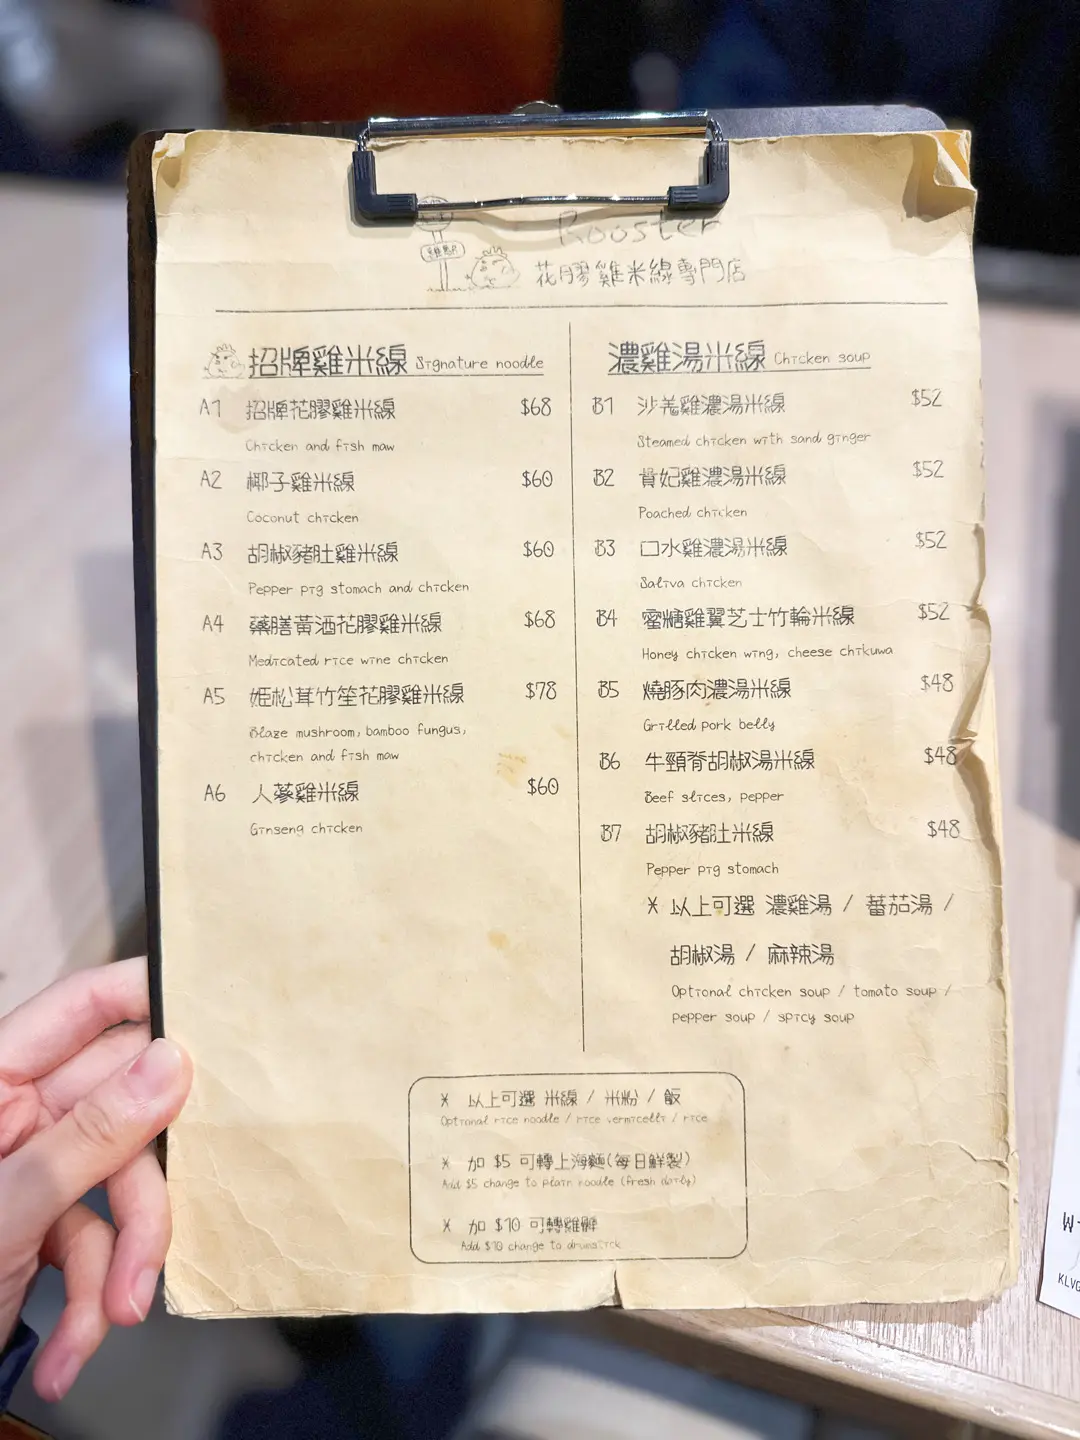 Rooster
雞煲
花膠雞米線專門店
招牌雞米線 Signature noodle
A1 招牌花膠雞米線 $68
Chicken and fish maw
A2 椰子雞米線 $60
Coconut chicken
A3 胡椒豬肚雞米線 $60
Pepper pig stomach and chicken
A4 藥膳黃酒花膠雞米線 $68
Medicated rice wine chicken
A5 姬松茸竹笙花膠雞米線 $78
Blaze mushroom, bamboo fungus,
chicken and fish maw
A6 人蔘雞米線 $60
Ginseng chicken
濃雞湯米線 Chicken soup
B1 沙羗雞濃湯米線 $52
Steamed chicken with sand ginger
B2 貴妃雞濃湯米線 $52
Poached chicken
B3 口水雞濃湯米線 $52
Saliva chicken
B4 蜜糖雞翼芝士竹輪米線 $52
Honey chicken wing, cheese chikuwa
B5 燒豚肉濃湯米線 $48
Grilled pork belly
B6 牛頸脊胡椒湯米線 $48
Beef slices, pepper
B7 胡椒豬肚米線 $48
Pepper pig stomach
* 以上可選 濃雞湯 / 蕃茄湯 /
胡椒湯 / 麻辣湯
Optional chicken soup / tomato soup /
pepper soup / spicy soup
* 以上可選 米線 / 米粉 / 飯
Optional rice noodle / rice vermicelli / rice
* 加 $5 可轉上海麵(每日鮮製)
Add $5 change to plain noodle (fresh daily)
* 加 $10 可轉雞髀
Add $10 change to drumstick
KLVG